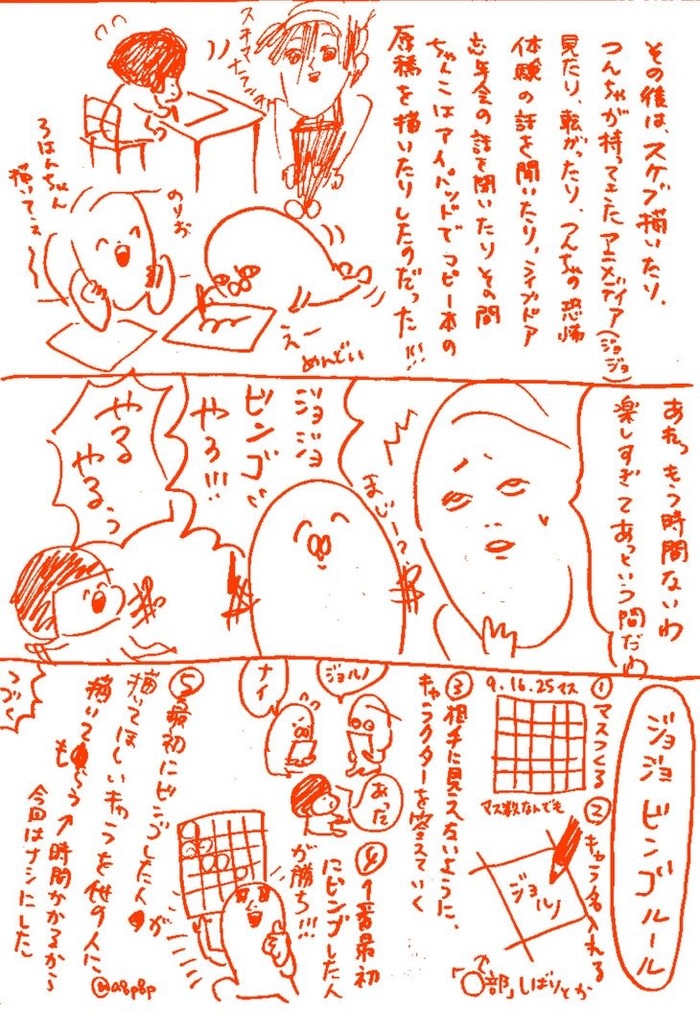 その後は、スケブ描いたり、
つんちゃが持ってきたアニメディア(ジョジョ)
見たり、転がったり、つんちゃの恐怖
体験の話を聞いたり、ライブドア
忘年会の話を聞いたりその間
ちゃんこはアイパッドでコピー本の
原稿を描いたりしたのだった!!!
スキマ
のりお
ろはんちゃん
描いてェ〜
えー
めんどい
あれっもう時間ないわ
楽しすぎてあっという間だわ
まじーっ?
ジョジョ
ビンゴ
やろ!!!
やる
やるぅ
ジョジョビンゴルール
①マスつくる
9.16.25マス
マス数なんでも
②キャラ名入れる
ジョルノ
「○部」しばりとか
③相手に見えないように、
キャラクターを答えていく
ジョルノ
ナイ
あった
④1番最初
にビンゴした人
が勝ち!!!
⑤最初にビンゴした人が
描いてほしいキャラを他の人に
描いてもらう↑時間かかるから
今回はナシにした
@a8p8p
つづく